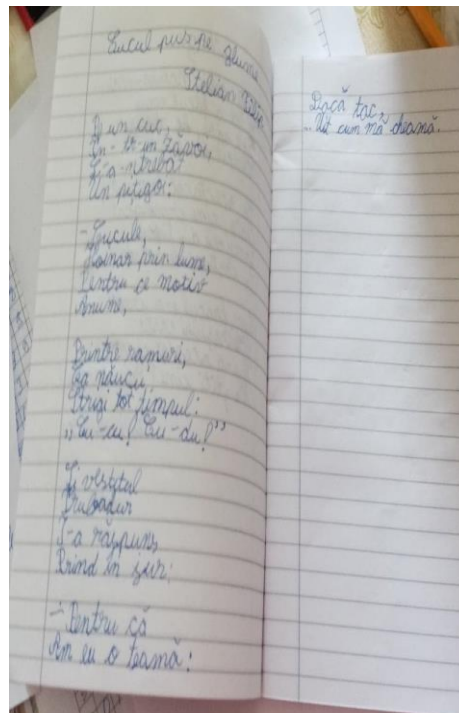 Cucul pus pe glume
Stelian Filip
P-un cuc,
În-tr-un zăvoi,
L-a-ntrebat
Un pițigoi:
- Cucule,
Hoinar prin lume,
Pentru ce motiv
Anume,
Printre ramuri,
Ca năucu,
Strigi tot timpul:
,,Cu-cu! Cu-du!"
Și vestitul
Trubadur
I-a răspuns,
Râzind în jur:
- Pentru că
Am eu o teamă:
Dacă tac,
,,Uit cum mă cheamă.